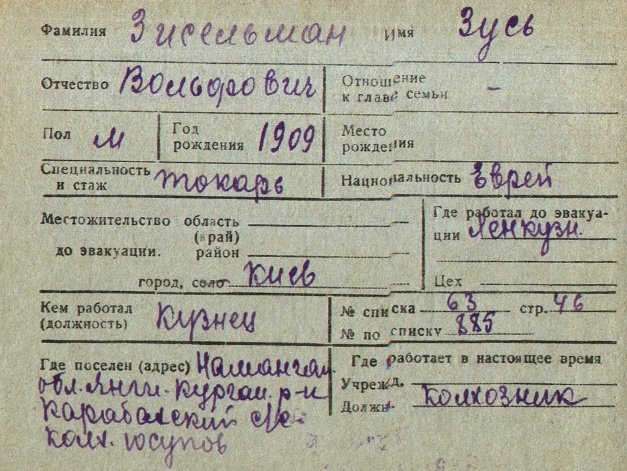 Фамилия Зисельман Имя Зусь
Отчество Вольфович Отношение к главе семьи -
Пол м Год рождения 1909 Место рождения
Специальность и стаж токарь Национальность Еврей
Местожительство до эвакуации. область (край)
район
город, село Киев
Где работал до эвакуации Ленкузн.
Цех
Кем работал (должность) Кузнец
№ списка 63 стр. 46
№ по списку 885
Где поселен (адрес) Наманган.
обл. Янги-Курган. р-н
Карабахский с/с
колх. Юсупов
Где работает в настоящее время
Учрежд.
Должн. колхозник